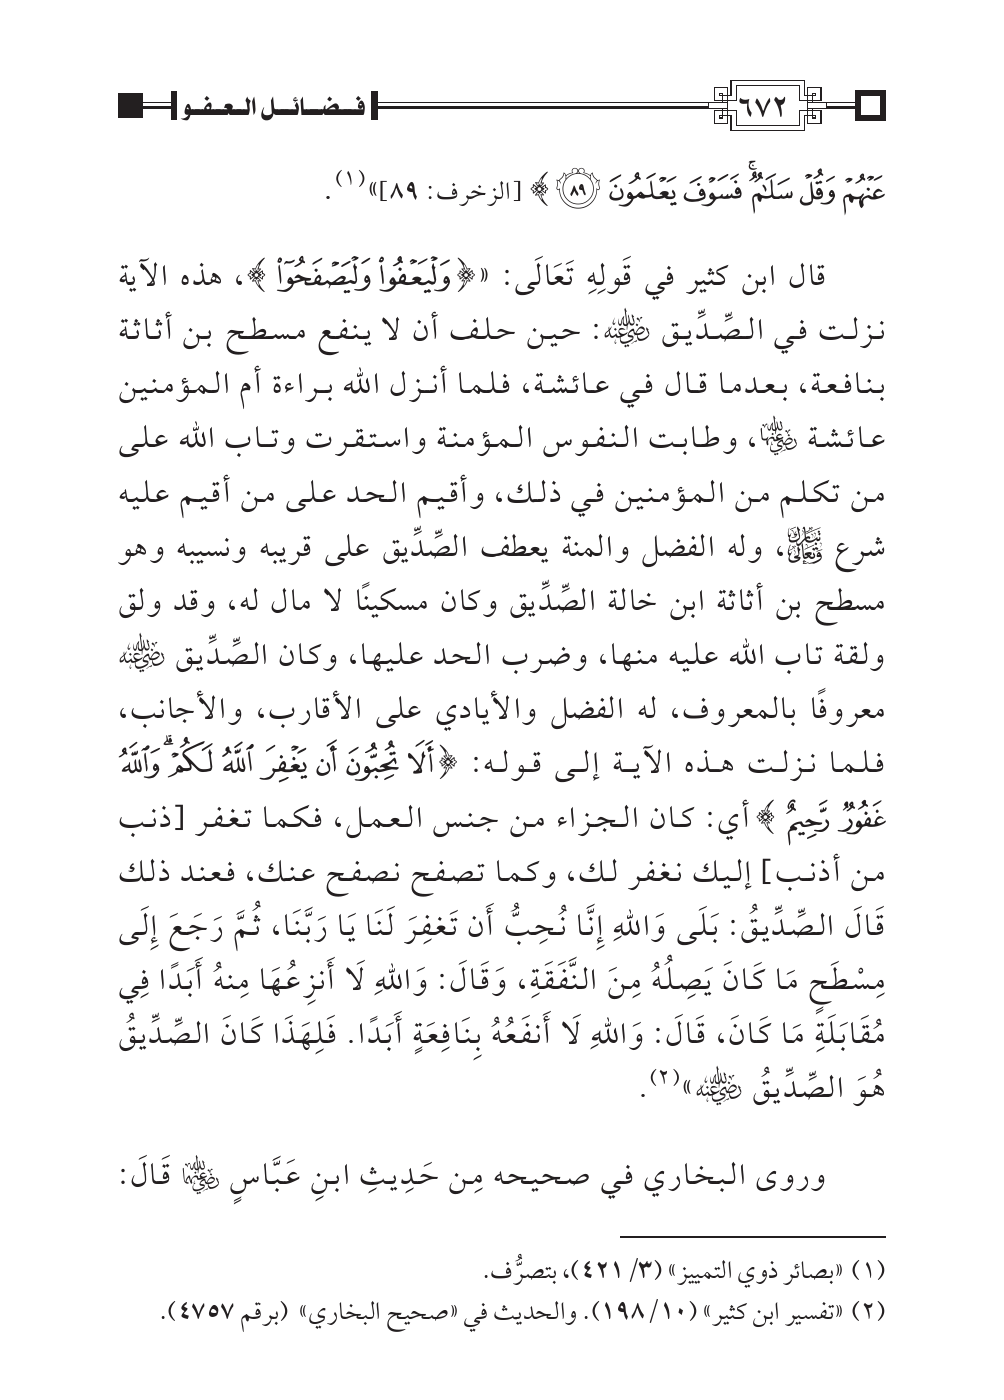 ٦٧٢
فـضـائـل الـعـفـو
عَنْهُمْ وَقُلْ سَلَٰمٌ ۚ فَسَوْفَ يَعْلَمُونَ ۝٨٩ ﴾ [الزخرف: ٨٩]»(١).
قال ابن كثير في قَولِهِ تَعَالَى: «﴿ وَلْيَعْفُوا۟ وَلْيَصْفَحُوٓا۟ ﴾، هذه الآية
نزلت في الصِّدِّيق رضي الله عنه: حين حلف أن لا ينفع مسطح بن أثاثة
بنافعة، بعدما قال في عائشة، فلما أنزل الله براءة أم المؤمنين
عائشة رضي الله عنها، وطابت النفوس المؤمنة واستقرت وتاب الله على
من تكلم من المؤمنين في ذلك، وأقيم الحد على من أقيم عليه
شرع تبارك وتعالى، وله الفضل والمنة يعطف الصِّدِّيق على قريبه ونسيبه وهو
مسطح بن أثاثة ابن خالة الصِّدِّيق وكان مسكينًا لا مال له، وقد ولق
ولقة تاب الله عليه منها، وضرب الحد عليها، وكان الصِّدِّيق رضي الله عنه
معروفًا بالمعروف، له الفضل والأيادي على الأقارب، والأجانب،
فلما نزلت هذه الآية إلى قوله: ﴿ أَلَا تُحِبُّونَ أَن يَغْفِرَ ٱللَّهُ لَكُمْ ۗ وَٱللَّهُ
غَفُورٌ رَّحِيمٌ ﴾ أي: كان الجزاء من جنس العمل، فكما تغفر [ذنب
من أذنب] إليك نغفر لك، وكما تصفح نصفح عنك، فعند ذلك
قَالَ الصِّدِّيقُ: بَلَى وَاللهِ إِنَّا نُحِبُّ أَن تَغفِرَ لَنَا يَا رَبَّنَا، ثُمَّ رَجَعَ إِلَى
مِسْطَحٍ مَا كَانَ يَصِلُهُ مِنَ النَّفَقَةِ، وَقَالَ: وَاللهِ لَا أَنزِعُهَا مِنهُ أَبَدًا فِي
مُقَابَلَةِ مَا كَانَ، قَالَ: وَاللهِ لَا أَنفَعُهُ بِنَافِعَةٍ أَبَدًا. فَلِهَذَا كَانَ الصِّدِّيقُ
هُوَ الصِّدِّيقُ رضي الله عنه»(٢).
وروى البخاري في صحيحه مِن حَدِيثِ ابنِ عَبَّاسٍ رضي الله عنهما قَالَ:
(١) «بصائر ذوي التمييز» (٣/ ٤٢١)، بتصرُّف.
(٢) «تفسير ابن كثير» (١٠/ ١٩٨). والحديث في «صحيح البخاري» (برقم ٤٧٥٧).